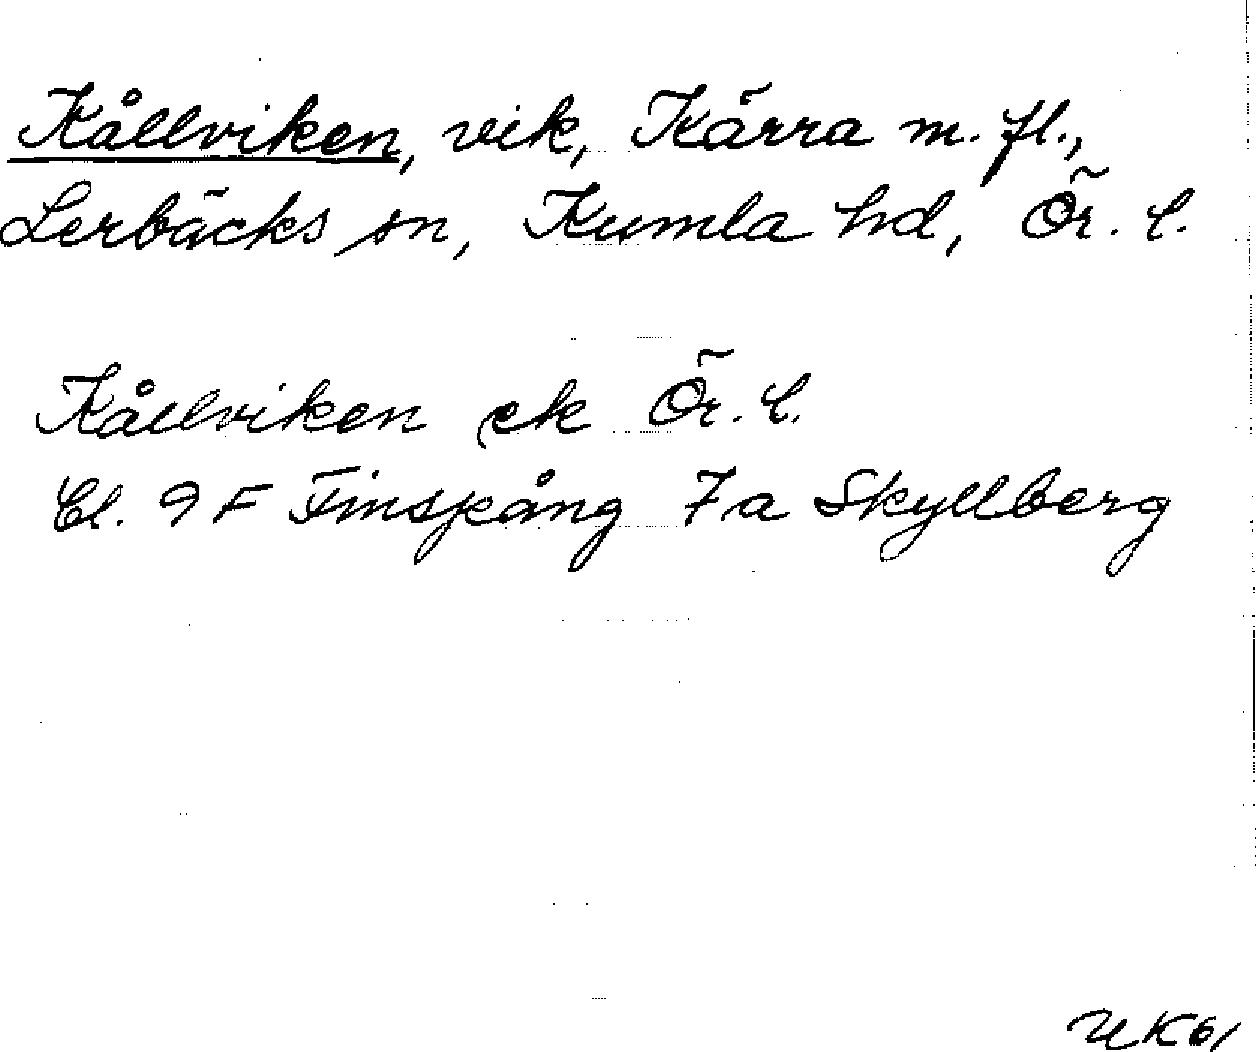 Kållviken, vik, Kärra m. fl.,
Lerbäcks sn, Kumla hd, Ör. l.
Kållviken ek Ör. l.
Bl. 9 F Finspång 7a Skyllberg
UK61